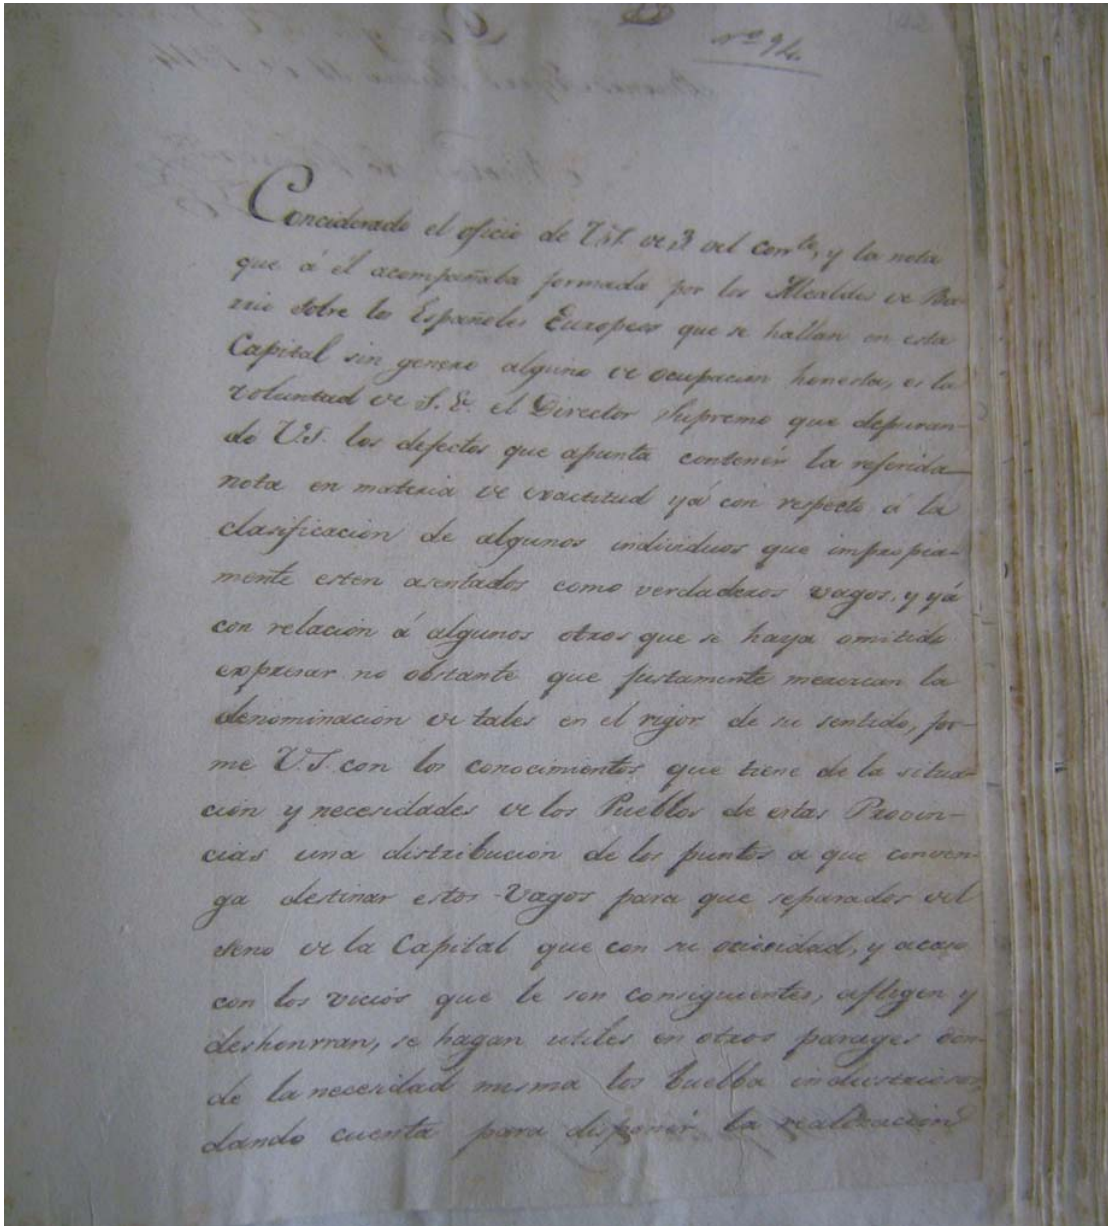 nº 94.
Conciderado el oficio de V.S. de 3 del corrte, y la nota
que á él acompañaba formada por los Alcaldes de Bar-
rio sobre los Españoles Europeos que se hallan en esta
Capital sin genero alguno de ocupacion honesta, es la
voluntad de S. E. el Director Supremo que depuran-
do V.S. los defectos que apunta contenér la referida
nota en materia de exactitud yá con respecto á la
clasificacion de algunos individuos que impropia-
mente estén asentados como verdaderos vagos, y yá
con relación á algunos otros que se haya omitido
expresar no obstante que justamente merezcan la
denominación de tales en el rigor de su sentido, for-
me V.S. con los conocimientos que tiene de la situa-
ción y necesidades de los Pueblos de estas Provin-
cias una distribución de los puntos a que conven-
ga destinar estos Vagos para que separados del
seno de la Capital que con su ociosidad, y acaso
con los vicios que le son consiguientes, afligen y
deshonrran, se hagan utiles en otros parages don-
de la necesidad misma los buelba industriosos
dando cuenta para disponér la realización